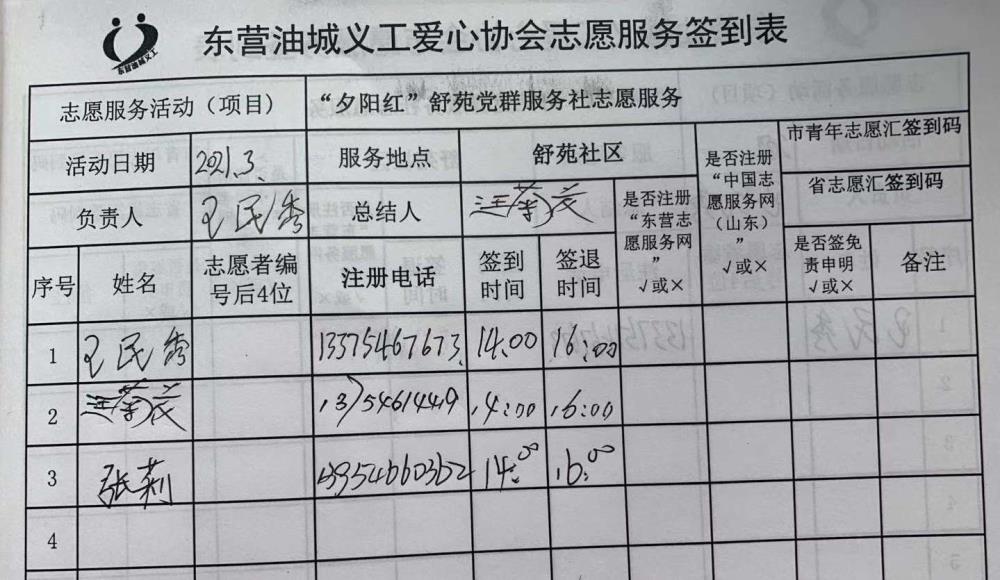 东营油城义工爱心协会志愿服务签到表
志愿服务活动（项目） “夕阳红”舒苑党群服务社志愿服务
活动日期 2021.3. 服务地点 舒苑社区 是否注册“中国志愿服务网(山东)”√或× 市青年志愿汇签到码
负责人 王民秀 总结人 是否注册“东营志愿服务网”√或× 省志愿汇签到码
序号 姓名 志愿者编号后4位 注册电话 签到时间 签退时间 是否签免责申明√或× 备注
1 王民秀 13375467673 14:00 16:00
2 14:00 16:00
3 张莉 14:00 16:00
4